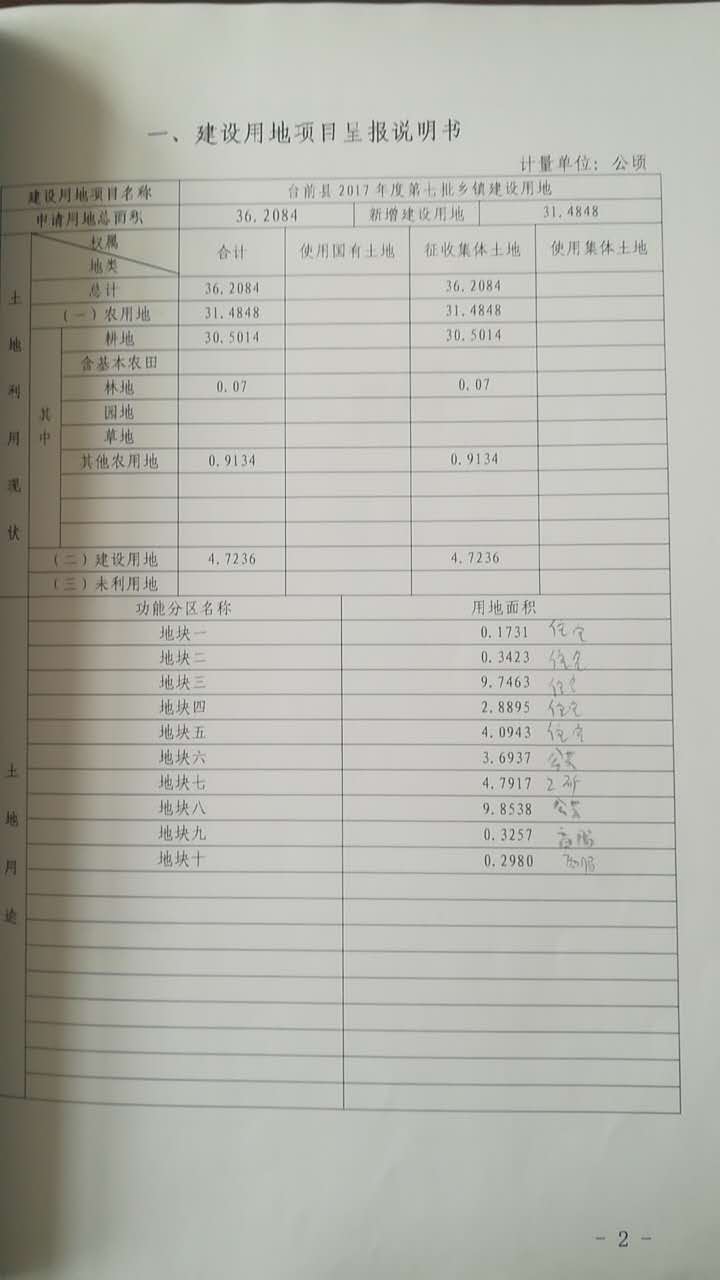 一、建设用地项目呈报说明书
计量单位：公顷
建设用地项目名称 台前县2017年度第七批乡镇建设用地
申请用地总面积 36.2084 新增建设用地 31.4848
土地利用现状
权属 地类 合计 使用国有土地 征收集体土地 使用集体土地
总计 36.2084 36.2084
（一）农用地 31.4848 31.4848
其中
耕地 30.5014 30.5014
含基本农田
林地 0.07 0.07
园地
草地
其他农用地 0.9134 0.9134
（二）建设用地 4.7236 4.7236
（三）未利用地
土地用途
功能分区名称 用地面积
地块一 0.1731 住宅
地块二 0.3423 住宅
地块三 9.7463 住宅
地块四 2.8895 住宅
地块五 4.0943 住宅
地块六 3.6937 公共
地块七 4.7917
地块八 9.8538 公共
地块九 0.3257 商服
地块十 0.2980 商服
- 2 -